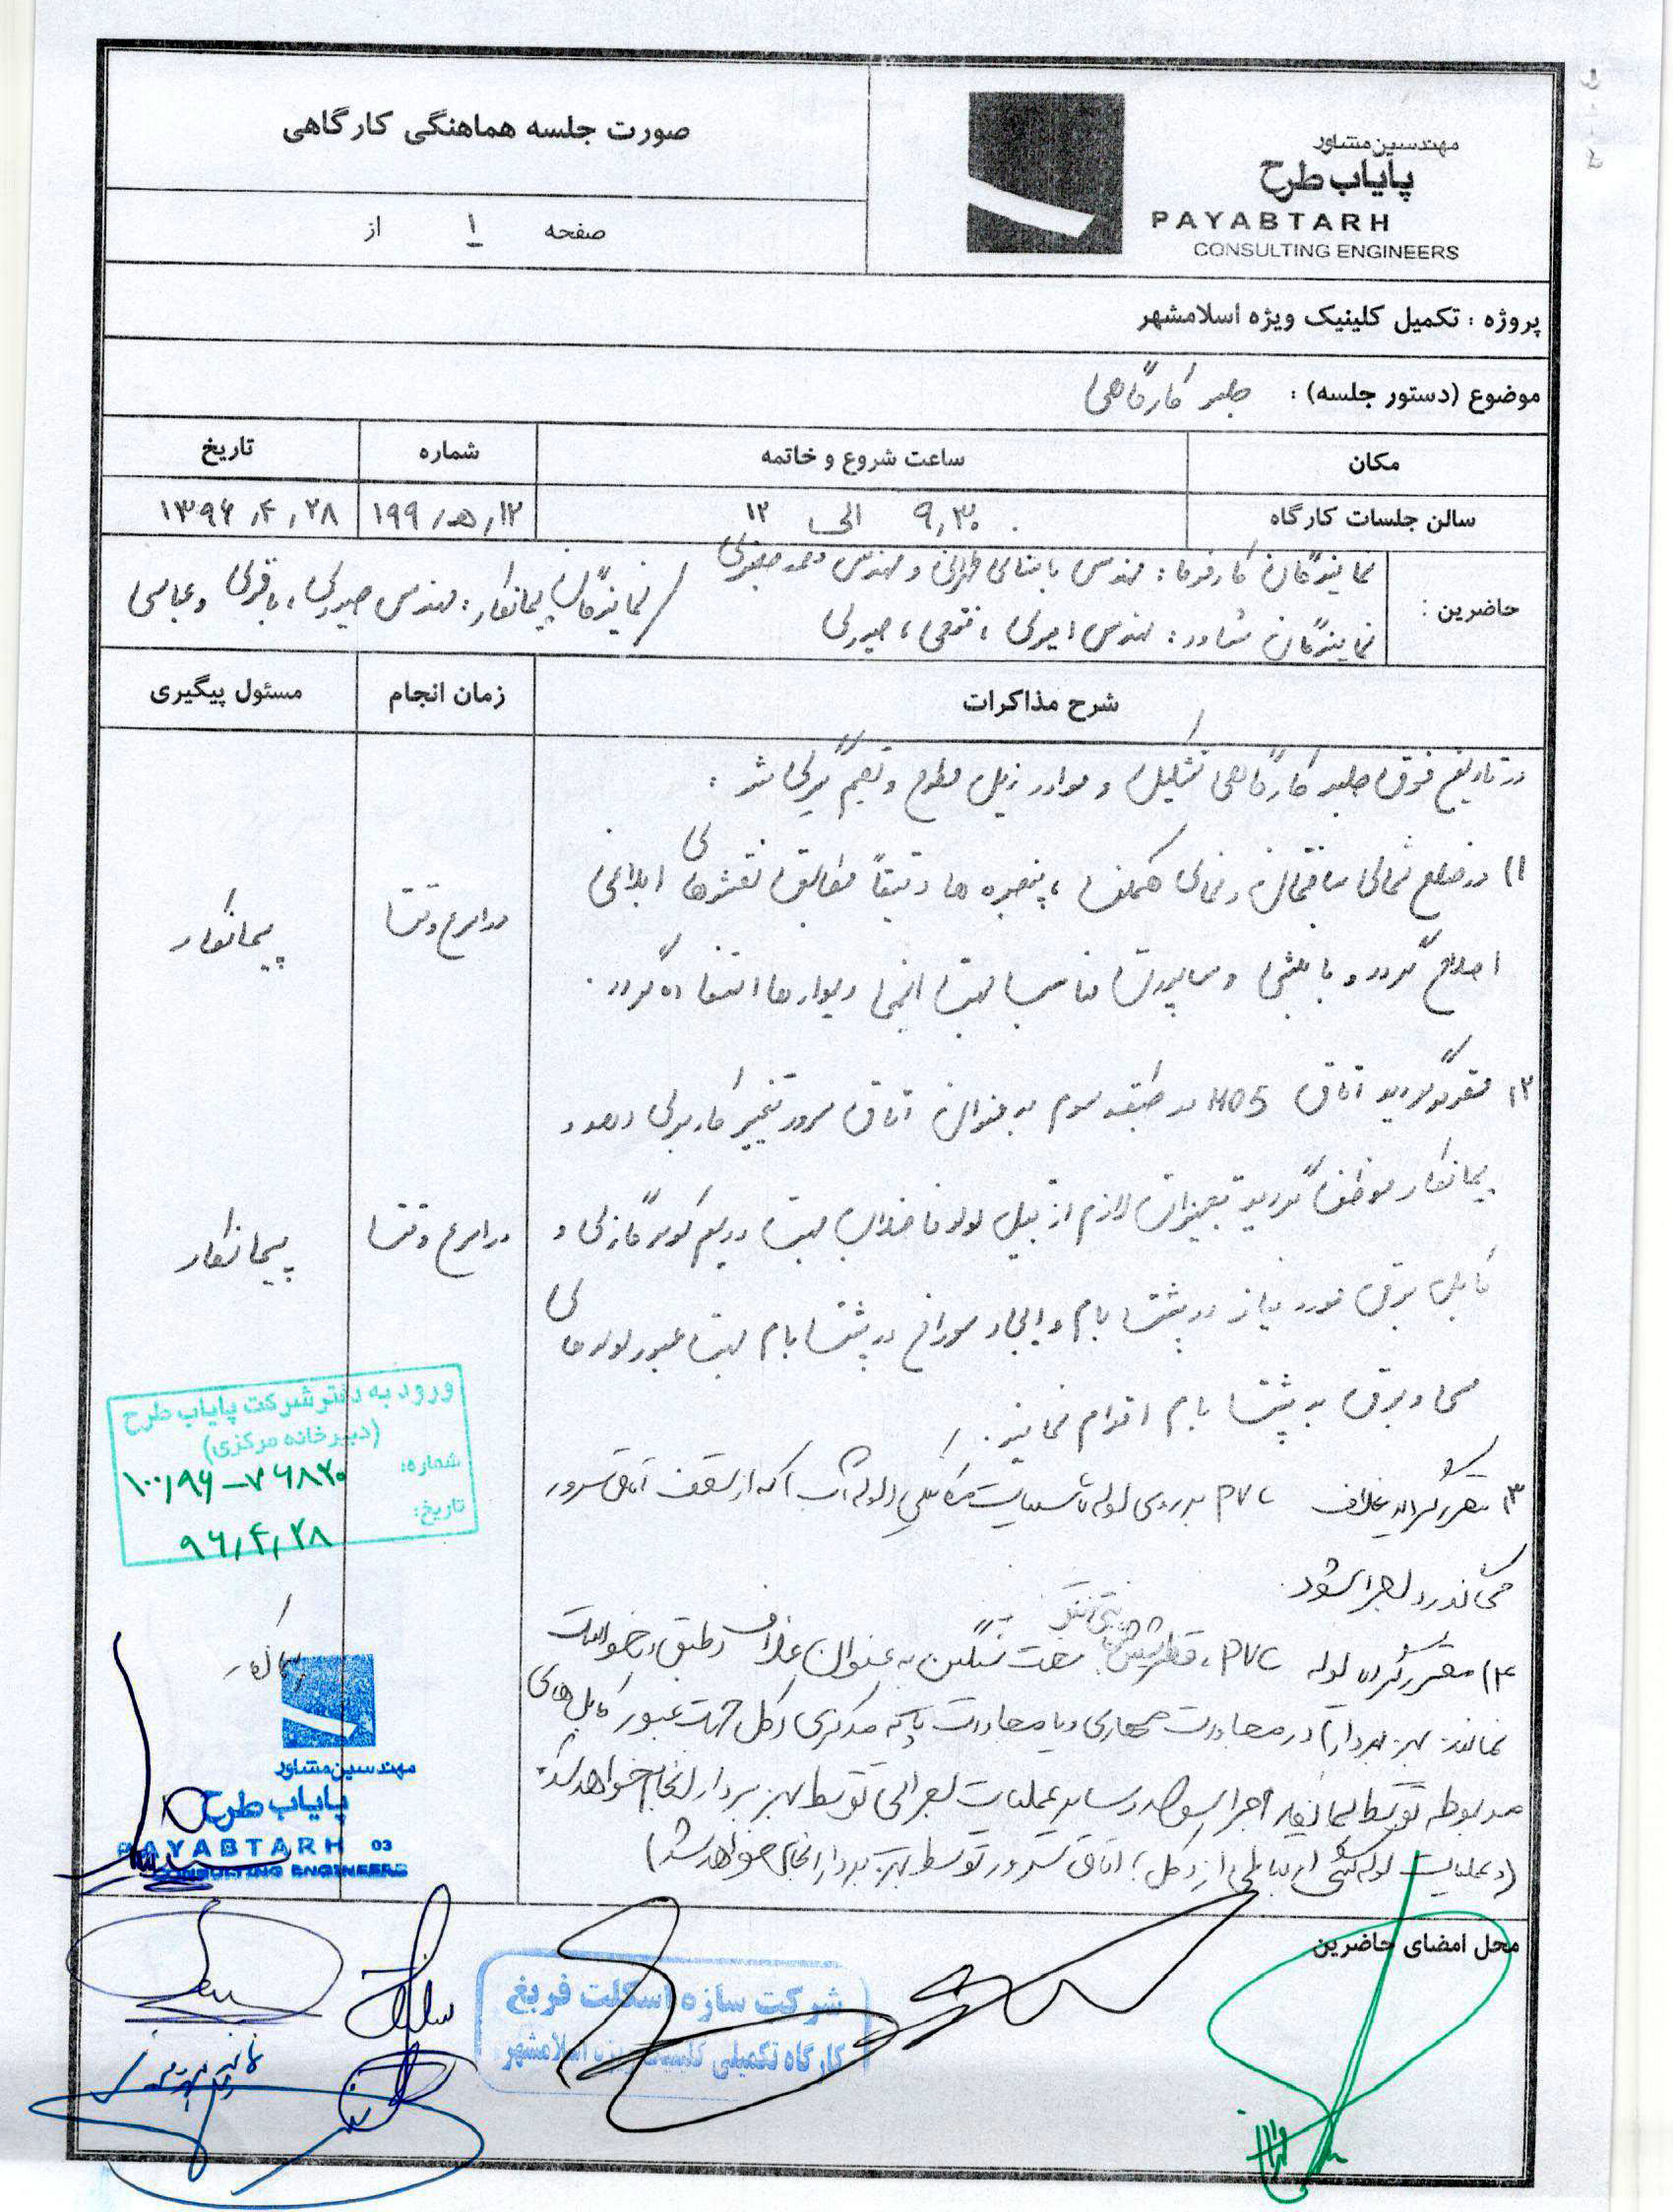 صورت جلسه هماهنگی کارگاهی
صفحه ۱ از
مهندسین مشاور
پایاب طرح
PAYABTARH
CONSULTING ENGINEERS
پروژه : تکمیل کلینیک ویژه اسلامشهر
موضوع (دستور جلسه) : جلسه کارگاهی
مکان ساعت شروع و خاتمه شماره تاریخ
سالن جلسات کارگاه ۹,۳۰ الی ۱۲ ۱۲,ه,۱۹۹ ۱۳۹۶,۴,۲۸
حاضرین :
نمایندگان کارفرما : مهندس باستانی تهرانی و مهندس محمد جعفری
نمایندگان مشاور : مهندس امیری ، فتوحی ، حیدری / نمایندگان پیمانکار : مهندس حیدری ، باقری و عباسی
شرح مذاکرات زمان انجام مسئول پیگیری
در تاریخ فوق جلسه کارگاهی تشکیل و موارد زیل مطرح و تصمیم گیری شد :
۱) در ضلع شمالی ساختمان و نمای همکف ، پنجره ها دقیقاً مطابق نقشه‌های ابلاغی
اصلاح گردد و با و ساپورت مناسب جهت دیوارها استفاده گردد .
در اسرع وقت پیمانکار
۲) مقرر گردید اتاق 405 در طبقه سوم به عنوان اتاق سرور تغییر کاربری دهد و
پیمانکار موظف گردید تجهیزات لازم از قبیل لوله فاضلاب جهت درین کولر گازی و
در اسرع وقت پیمانکار
کابل برق مورد نیاز در پشت بام و ایجاد سوراخ در پشت بام جهت عبور لوله های
مسی و برق به پشت بام اقدام نمایند .
۳) مقرر گردید غلاف PVC بر روی لوله تاسیسات مکانیکی (لوله آب) که از سقف اتاق سرور
می گذرد اجرا شود .
۴) مقرر گردید لوله PVC ، قطر سخت سنگین به عنوان غلاف (طبق درخواست
نماینده بهره بردار) در مجاورت و یا مجاورت پایه مرکزی دکل جهت عبور کابل های
پیمانکار
مربوطه توسط پیمانکار اجرا شود و سایر عملیات اجرائی توسط بهره بردار انجام خواهد شد .
(و عملیات لوله کشی ارتباطی از دکل به اتاق سرور توسط بهره بردار انجام خواهد شد)
ورود به دفتر شرکت پایاب طرح
(دبیرخانه مرکزی)
شماره: ۱۰۰,۹۶-۷۶۸۲۰
تاریخ: ۹۶,۴,۲۸
مهندسین مشاور
پایاب طرح
PAYABTARH 03
CONSULTING ENGINEERS
محل امضای حاضرین
شرکت سازه اسکلت فریغ
کارگاه تکمیلی اسلامشهر